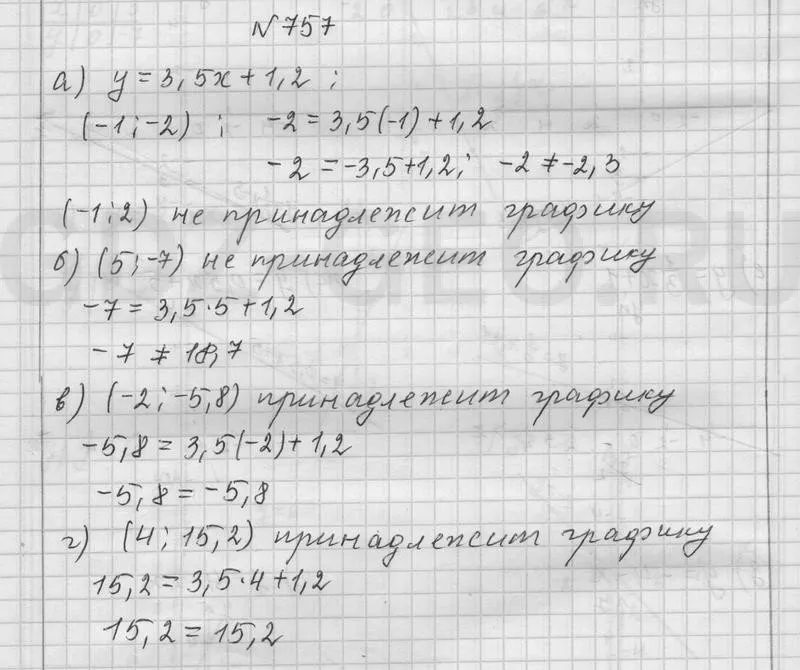 №757
а) y = 3,5x + 1,2 ;
(-1; -2) ; -2 = 3,5(-1) + 1,2
-2 = -3,5+1,2; -2 ≠ -2,3
(-1; 2) не принадлежит графику
б) (5; -7) не принадлежит графику
-7 = 3,5·5 + 1,2
-7 ≠ 18,7
в) (-2; -5,8) принадлежит графику
-5,8 = 3,5(-2) + 1,2
-5,8 = -5,8
г) (4; 15,2) принадлежит графику
15,2 = 3,5·4 + 1,2
15,2 = 15,2